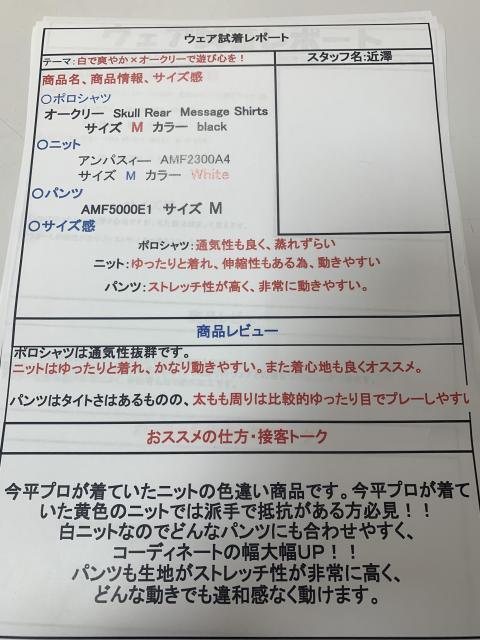 ウェア試着レポート
テーマ：白で爽やか×オークリーで遊び心を！
スタッフ名：近澤
商品名、商品情報、サイズ感
〇ポロシャツ
オークリー Skull Rear Message Shirts
サイズ M カラー black
〇ニット
アンパスィー AMF2300A4
サイズ M カラー White
〇パンツ
AMF5000E1 サイズ M
〇サイズ感
ポロシャツ：通気性も良く、蒸れずらい
ニット：ゆったりと着れ、伸縮性もある為、動きやすい
パンツ：ストレッチ性が高く、非常に動きやすい。
商品レビュー
ポロシャツは通気性抜群です。
ニットはゆったりと着れ、かなり動きやすい。また着心地も良くオススメ。
パンツはタイトさはあるものの、太もも周りは比較的ゆったり目でプレーしやすい
おススメの仕方・接客トーク
今平プロが着ていたニットの色違い商品です。今平プロが着て
いた黄色のニットでは派手で抵抗がある方必見！！
白ニットなのでどんなパンツにも合わせやすく、
コーディネートの幅大幅UP！！
パンツも生地がストレッチ性が非常に高く、
どんな動きでも違和感なく動けます。